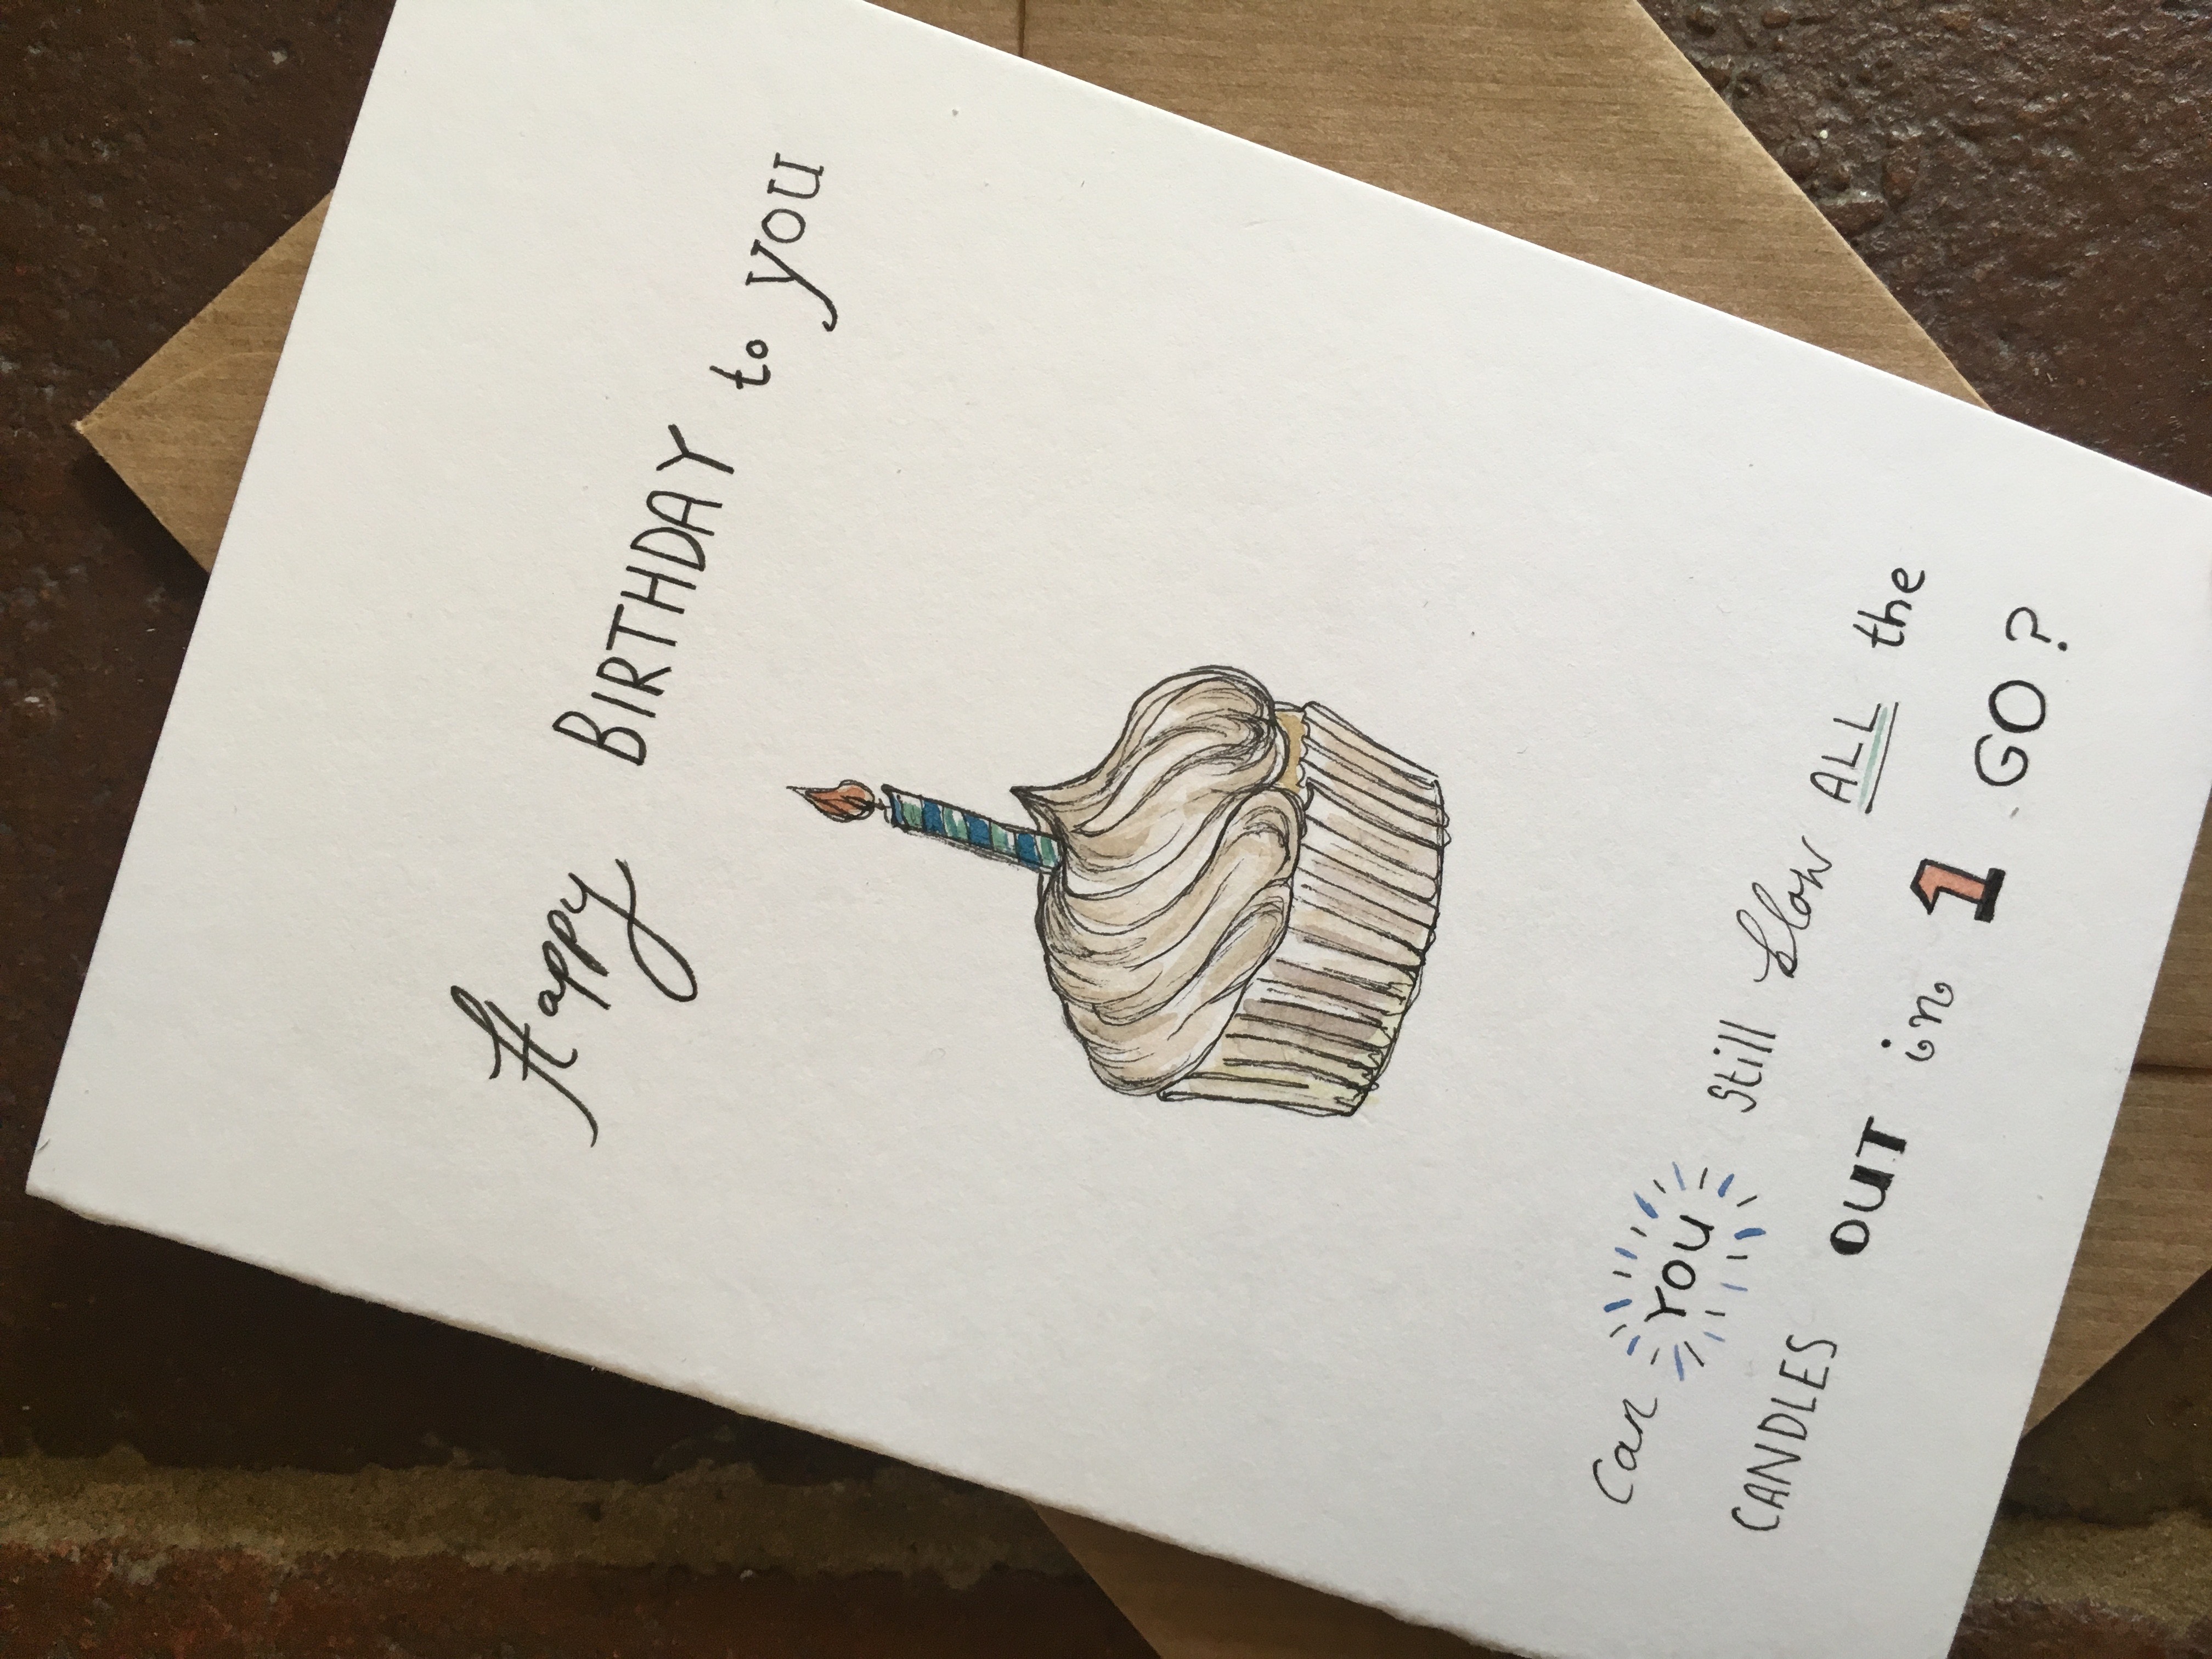 Happy BIRTHDAY to you
Can YOU still blow ALL the
CANDLES OUT in 1 GO?